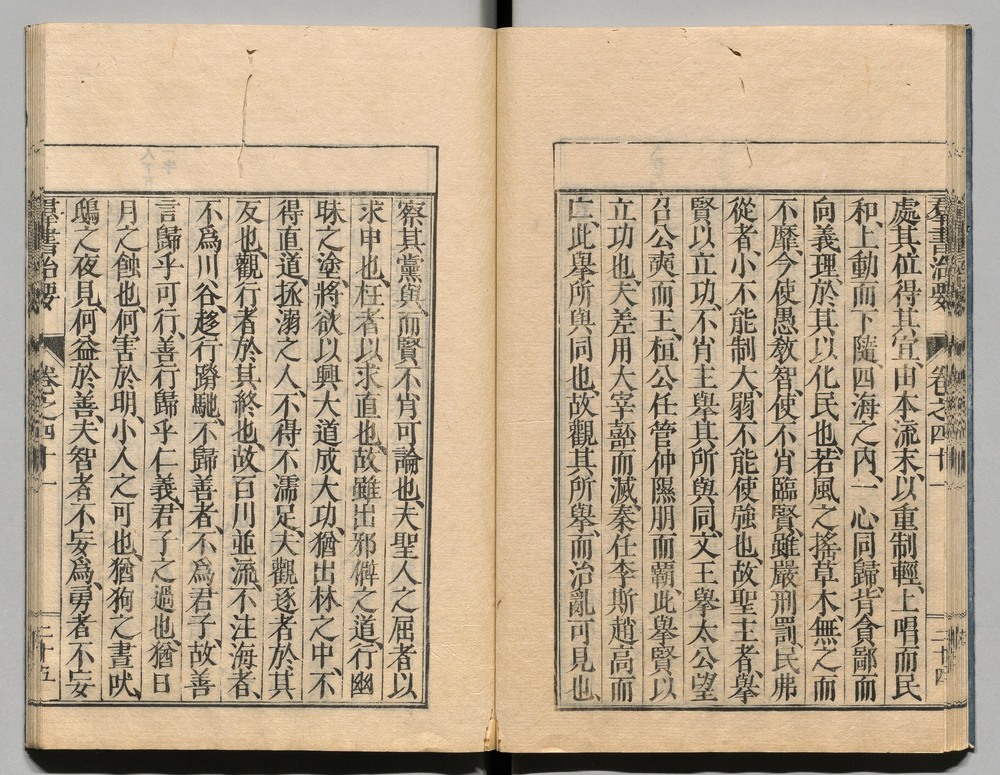 羣書治要　卷之四十一　二十四
處其位得其宜、由本流末、以重制輕、上唱而民
和、上動而下隨、四海之內、一心同歸、背貪鄙而
向義理、於其以化民也、若風之搖草木、無之而
不靡、今使愚教智、使不肖臨賢、雖嚴刑罰、民弗
從者、小不能制大、弱不能使強也、故聖主者、擧
賢以立功、不肖主擧其所與同、文王擧太公望
召公奭而王、桓公任管仲隰朋而霸、此擧賢以
立功也、夫差用大宰嚭而滅、秦任李斯趙高而
亡、此擧所與同也、故觀其所擧、而治亂可見也、
察其黨與、而賢不肖可論也、夫聖人之屈者以
求申也、枉者以求直也、故雖出邪僻之道、行幽
昧之塗、將欲以興大道成大功、猶出林之中、不
得直道、拯溺之人、不得不濡足、夫觀逐者於其
反也、觀行者於其終也、故百川並流、不注海者、
不爲川谷、趍行蹐馳、不歸善者、不爲君子、故善
言歸乎可行、善行歸乎仁義、君子之過也、猶日
月之蝕也、何害於明、小人之可也、猶狗之晝吠、
鴟之夜見、何益於善、夫智者不妄爲、勇者不妄
羣書治要　卷之四十一　二十五